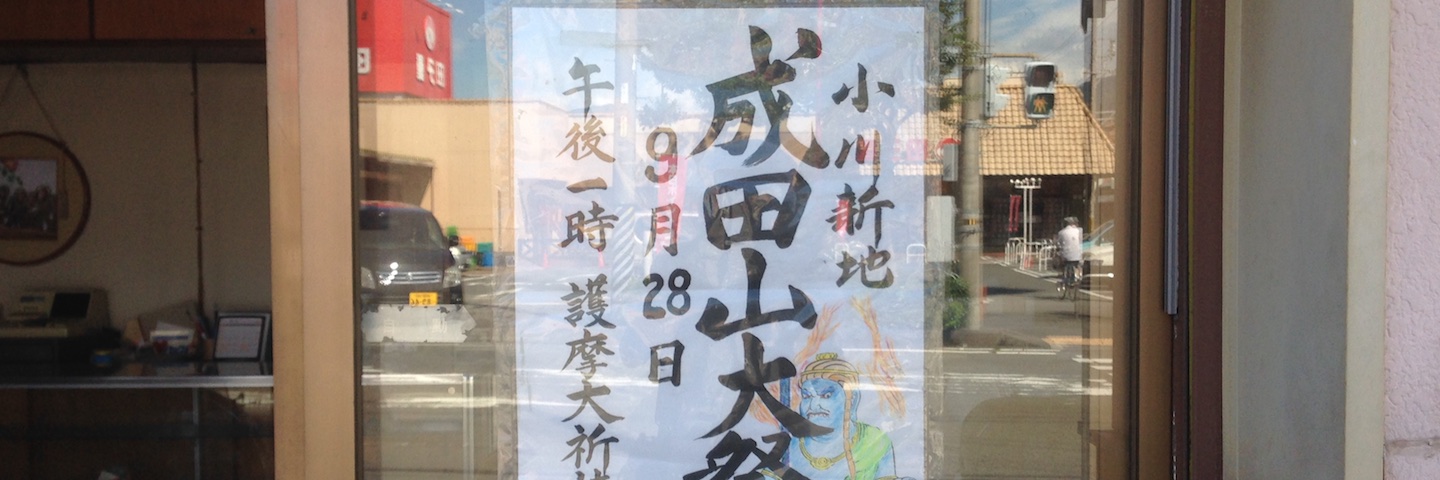 小川新地
成田山大祭
9月28日
午後一時 護摩大祈